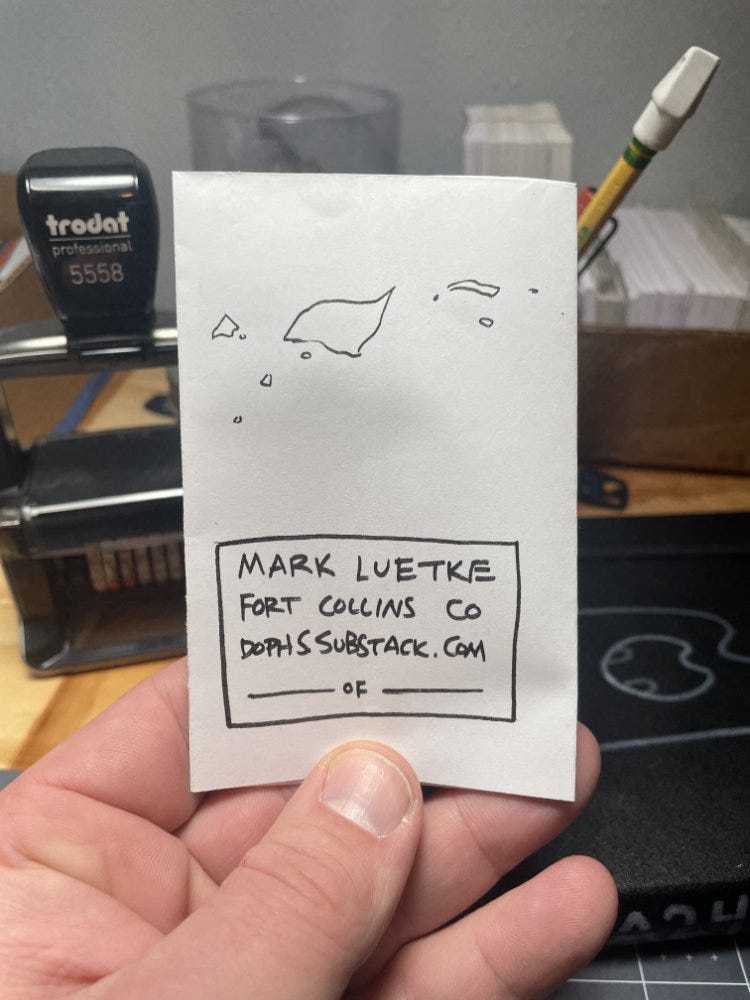 trodat
professional
5558
MARK LUETKE
FORT COLLINS CO
DOPHSSUBSTACK.COM
OF
A24